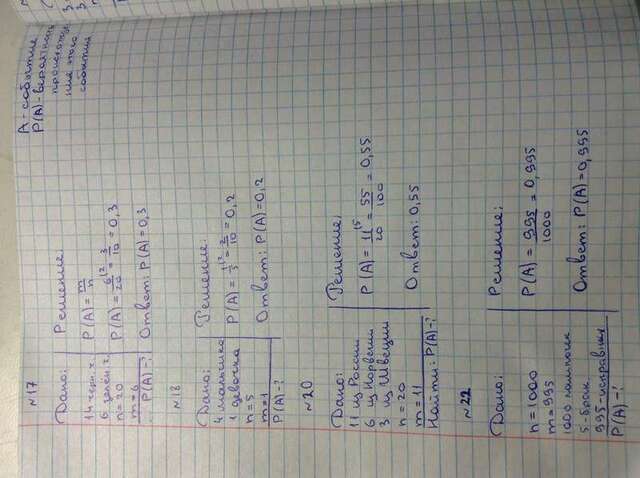 А - событие
P(A) - вероятность
происхожде-
ния этого
события
№17
Дано:
14 черн. ч.
6 зелён. ч.
n = 20
m = 6
P(A) - ?
Решение:
P(A) = m/n
P(A) = 6/20 = 3/10 = 0,3
Ответ: P(A) = 0,3
№18
Дано:
4 мальчика
1 девочка
n = 5
m = 1
P(A) - ?
Решение:
P(A) = 1/5 = 2/10 = 0,2
Ответ: P(A) = 0,2
№20
Дано:
11 из России
6 из Норвегии
3 из Швеции
n = 20
m = 11
Найти: P(A) - ?
Решение:
P(A) = 11/20 = 55/100 = 0,55
Ответ: 0,55
№22
Дано:
n = 1000
m = 995
1000 лампочек
5 - брак.
995 - исправных
P(A) - ?
Решение:
P(A) = 995/1000 = 0,995
Ответ: P(A) = 0,995